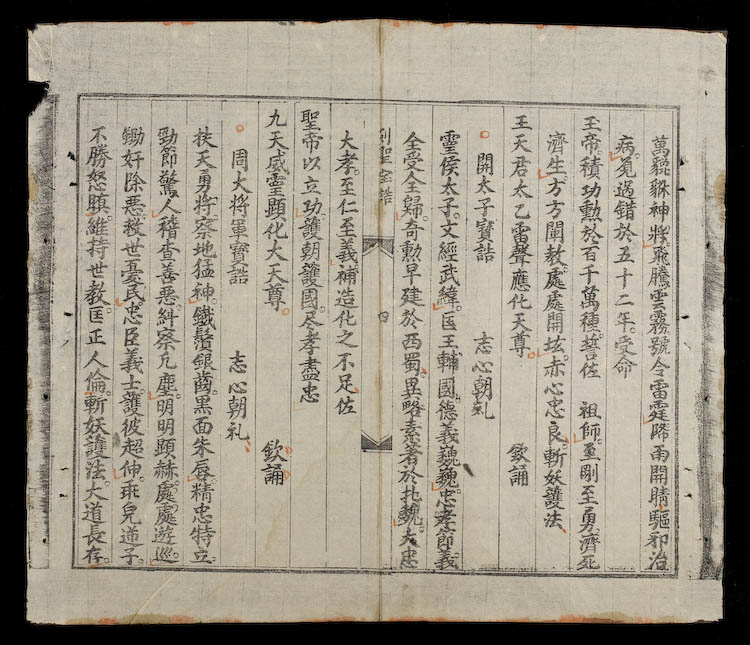 萬貔貅神將飛騰雲霧號令雷霆降雨開晴驅邪治
病。冤過錯於五十二年。受命
玉帝。積功勲於百千萬種。誓佐 祖師。至剛至勇。濟死
濟生。方方闡教。處處開坛。赤心忠良。斬妖護法
王天君太乙雷聲應化天尊。 欽誦
開太子寶誥 志心朝礼
靈侯太子。文經武緯。匡王輔國。德義巍巍。忠孝節義
全受全歸。奇勲早建於西蜀。異略素著於北魏。大忠
列聖宝誥 四
大孝。至仁至義。補造化之不足佐
聖帝以立功。護朝護國。尽孝盡忠
九天威靈顕化大天尊。
周大將軍寶誥 志心朝礼 欽誦
扶天勇將。察地猛神。鐵鬚銀齒。黑面朱唇。精忠特立。
勁節驚人。稽查善惡。糾察凡塵。明明顕赫。處處遊巡
鋤奸除惡。救世憂民。忠臣義士。護彼超伸。乖兒逆子。
不勝怒瞋。維持世教。匡正人倫。斬妖護法。大道長存。